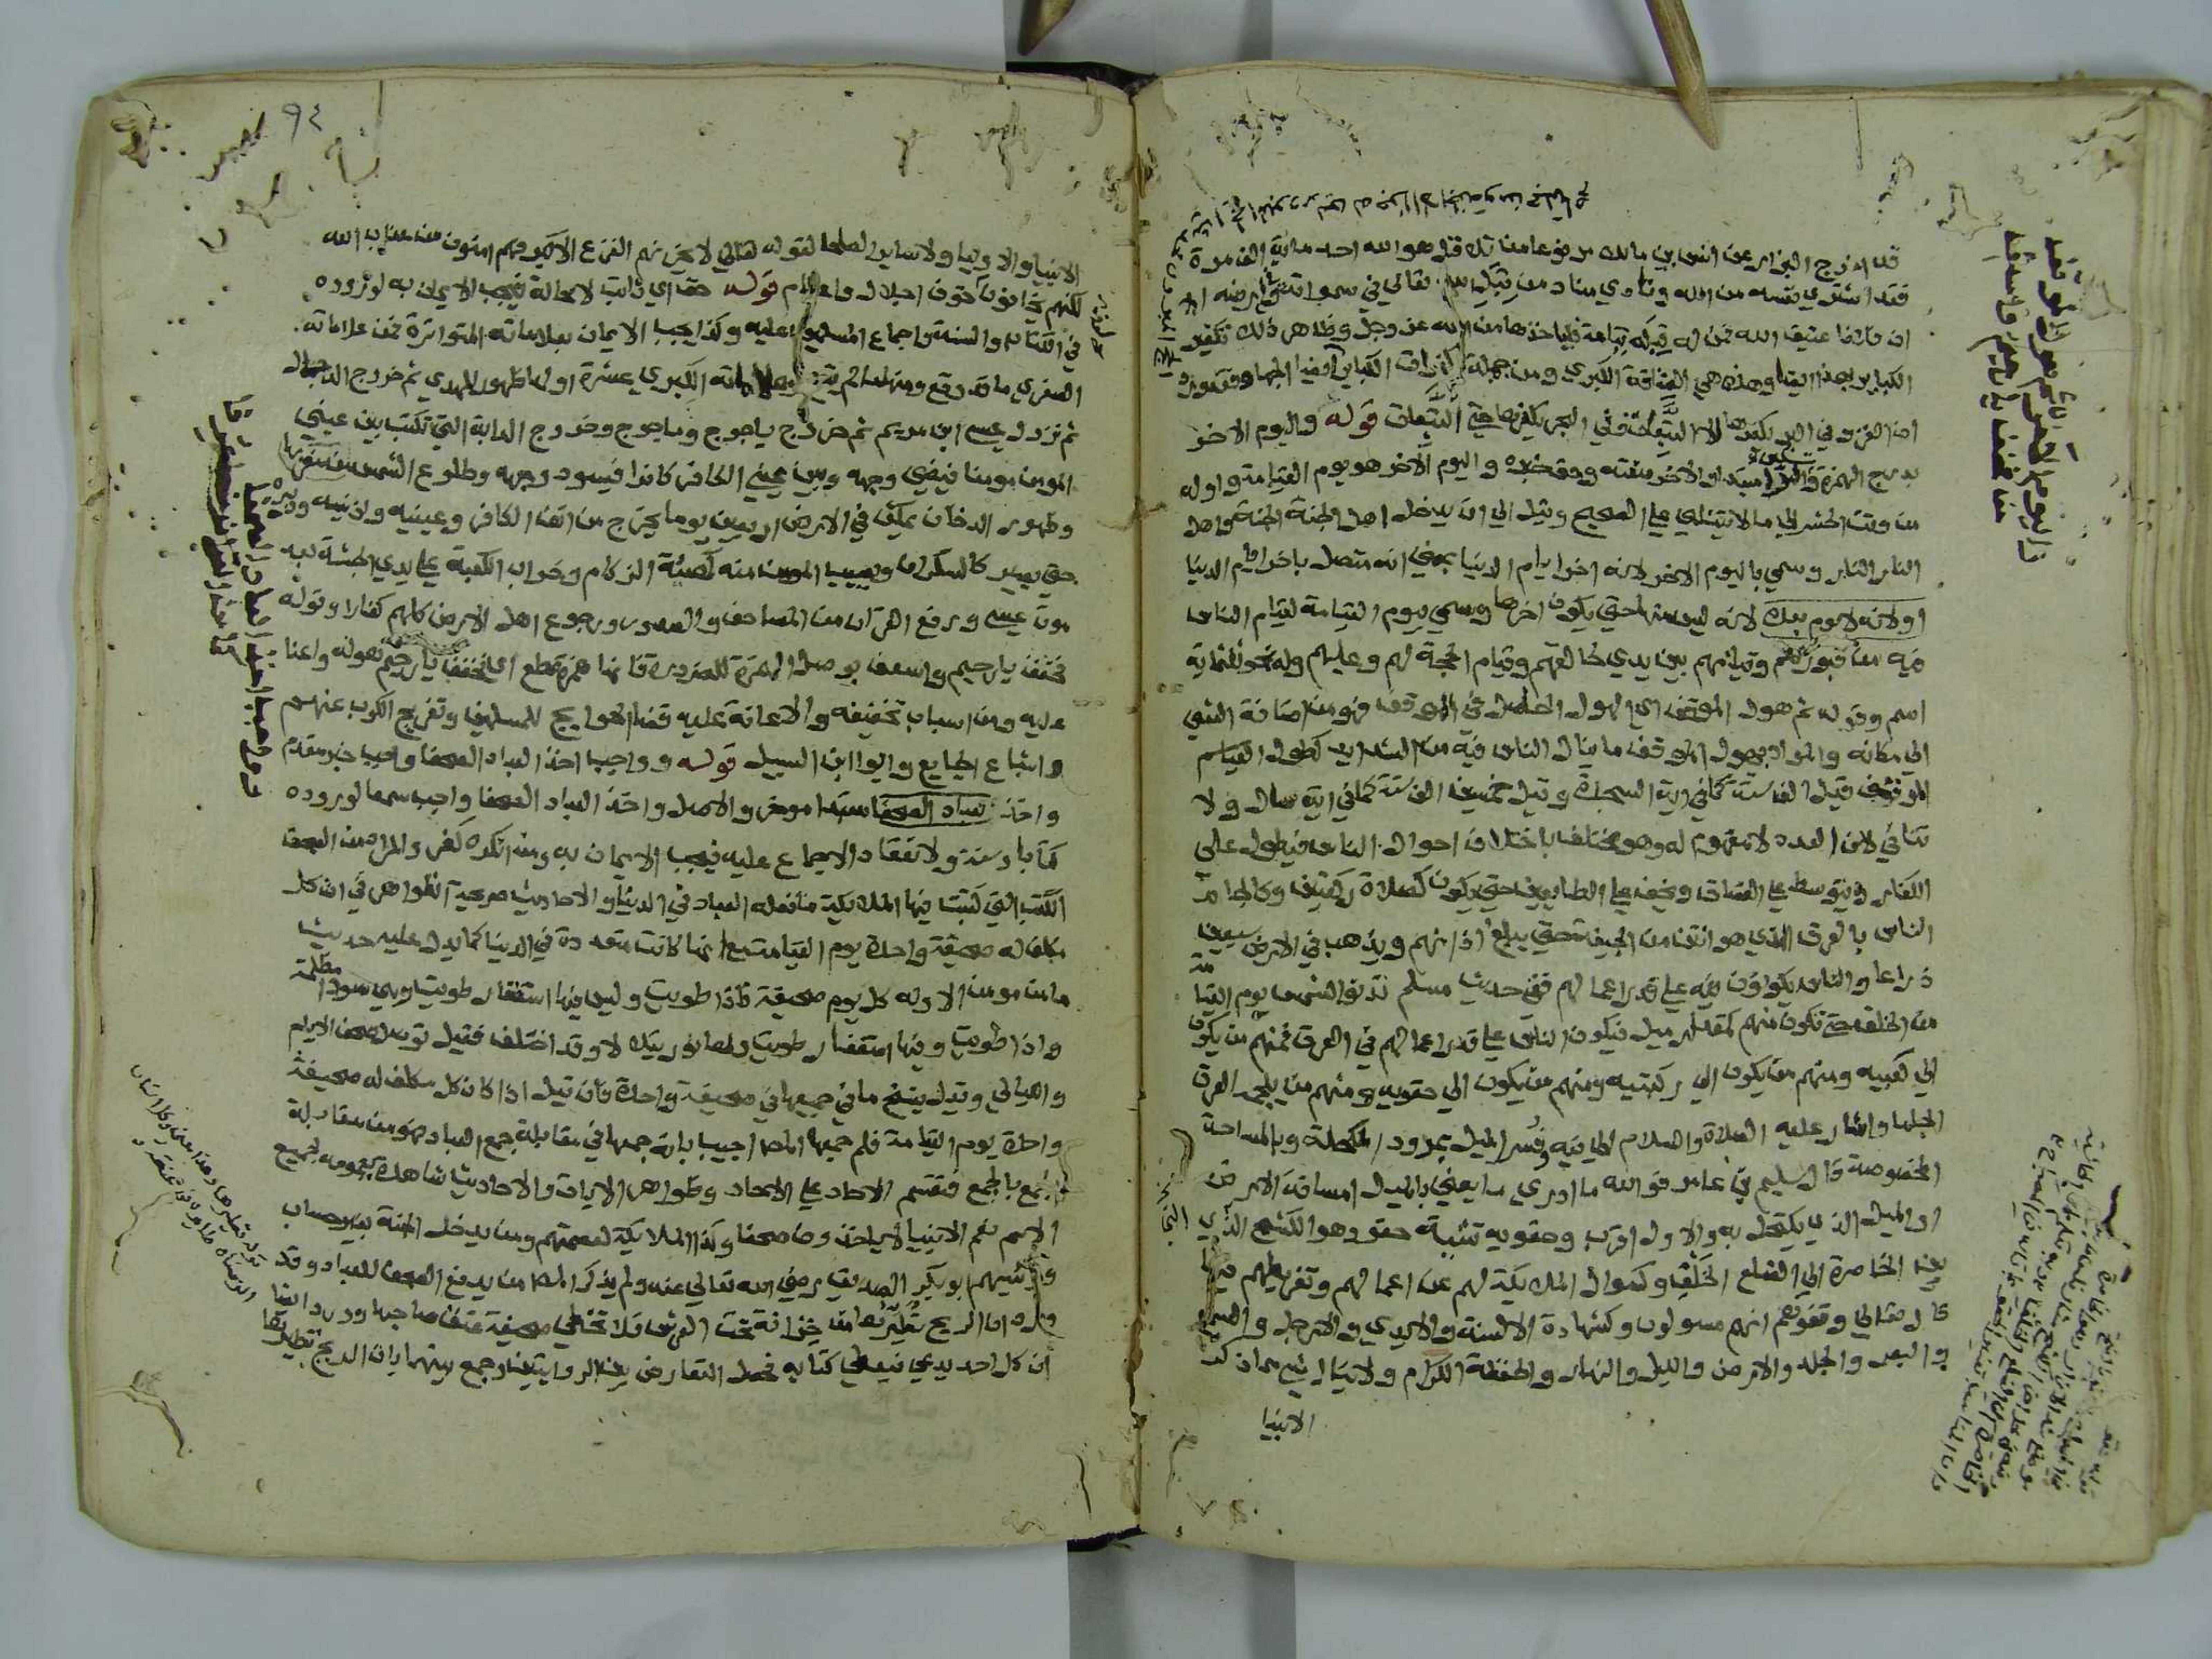 قد اخرج البزار عن انس بن مالك مرفوعا من تلا قل هو الله احد ماية الف مرة
فقد اشترى نفسه من الله ونادي مناد من قبل الله تعالي في سمواته وفي ارضه الا
ان فلانا عتيق الله فمن له قبله تباعة فلياخذها من الله عز وجل وظاهر ذلك تكفير
الكباير بهذا ايضا وهذه هي العتاقة الكبري ومن جملة مكفرات الكباير ايضا الجهاد
اما الغزو في البر يكفرها الا التبعات وفي البحر يكفرها حتي التبعات قوله واليوم الاخر
بدرج الهمزة مبتدا والاخر صفته وحق خبره واليوم الاخر هو يوم القيامة واوله
من وقت الحشر الي ما لا يتناهي علي الصحيح وقيل الي ان يدخل اهل الجنة الجنة واهل
النار النار وسمي باليوم الاخر لانه اخر ايام الدنيا بمعني انه متصل باخر ايام الدنيا
او لانه لا يوم بعده لانه ليس منها حتي يكون اخرها وسمي بيوم القيامة لقيام الناس
فيه من قبورهم وقيامهم بين يدي خالقهم وقيام الحجة لهم وعليهم وله نحو ثلثماية
اسم وقوله ثم هول الموقف اي الهول الحاصل في الموقف فهو من اضافة الشي
الي مكانه والمراد بهول الموقف ما ينال الناس فيه من الشدايد كطول القيام
الموقف قيل الف سنة كما في اية السجدة وقيل خمسين الف سنة كما في اية سال ولا
تنافي لان العدد لا مفهوم له وهو مختلف باختلاف احوال الناس فيطول علي
الكفار ويتوسط علي الفساق ويخف علي الطايعين حتي يكون كصلاة ركعتين وكالجام
الناس بالعرق الذي هو انتن من الجيفة حتي يبلغ اذانهم ويذهب في الارض سبعين
ذراعا والناس يكونون فيه علي قدر اعمالهم ففي حديث مسلم تدنوا الشمس يوم القيامة
من الخلق حتي تكون منهم كمقدار ميل فيكون الناس علي قدر اعمالهم في العرق فمنهم من يكون
الي كعبيه ومنهم من يكون الي ركبتيه ومنهم من يكون الي حقويه ومنهم من يلجمه العرق
الجاما واشار عليه الصلاة والسلام الي فيه وفسر الميل بمرود المكحلة وبالمساحة
المخصوصة قال سليم بن عامر فوالله ما ادري ما يعني بالميل امسافة الارض
او الميل الذي يكتحل به والاول اقرب وحقويه تثنية حقو وهو الكشح الذي
بين الخاصرة الي الضلع الخلف وكسوال الملايكة لهم عن اعمالهم وتفريطهم فيها
قال تعالي وقفوهم انهم مسولون وكشهادة الالسنة والايدي والارجل والسمع
والبصر والجلد والارض والليل والنهار والحفظة الكرام ولا ينال شي مما ذكر
الانبيا
واليوم الاخر ثم هول الموقف
حق فخفف يا رحيم واسعف
٩٤
الانبيا والاوليا ولا ساير الصلحا لقوله تعالي لا يحزنهم الفزع الاكبر فهم امنون من عذاب الله
لكنهم يخافون خوف اجلال واعظام قوله حق اي ثابت لا محالة فيجب الايمان به لوروده
في الكتاب والسنة واجماع المسلمين عليه وكذا يجب الايمان بعلاماته المتواترة فمن علاماته
الصغري ما قد وقع ومنها ما لم يقع وعلاماته الكبري عشرة اولها ظهور المهدي ثم خروج الدجال
ثم نزول عيسي ابن مريم ثم خروج ياجوج وماجوج وخروج الدابة التي تكتب بين عيني
المومن مومنا فيضي وجهه وبين عيني الكافر كافرا فيسود وجهه وطلوع الشمس من مغربها
وظهور الدخان يمكث في الارض اربعين يوما يخرج من انف الكافر وعينيه واذنيه ودبره
حتي يصير كالسكران ويصيب المومن منه كهيئة الزكام وخراب الكعبة علي يدي الحبشة بعد
موت عيسي ورفع القران من المصاحف والصدور ورجوع اهل الارض كلهم كفارا وقوله
فخفف يا رحيم واسعف بوصل الهمزة للضرورة فانها همزة قطع اي فخفف يا رحيم هوله واعنا
عليه ومن اسباب تخفيفه والاعانة عليه قضا الحوايج للمسلمين وتفريج الكرب عنهم
واشباع الجايع وايوا ابن السبيل قوله وواجب اخذ العباد الصحفا واجب خبر مقدم
واخذ العباد الصحفا مبتدا موخر والاصل واخذ العباد الصحفا واجب سمعا لوروده
كتابا وسنة ولانعقاد الاجماع عليه فيجب الايمان به ومن انكره كفر والمراد من الصحف
الكتب التي كتبت فيها الملايكة ما فعله العباد في الدنيا والاحاديث صريحة الظواهر في ان كل
مكلف له صحيفة واحدة يوم القيامة مع انها كانت متعددة في الدنيا كما يدل عليه حديث
ما من مومن الا وله كل يوم صحيفة فاذا طويت وليس فيها استغفار طويت وهي سودا مظلمة
واذا طويت وفيها استغفار طويت ولها نور يتلالا وقد اختلف فقيل توصل صحف الايام
والليالي وقيل ينسخ ما في جميعها في صحيفة واحدة فان قيل اذا كان كل مكلف له صحيفة
واحدة يوم القيامة فلم جمعها المص اجيب بانه جمعها في مقابلة جمع العباد فهو من مقابلة
الجمع بالجمع فتقسم الاحاد علي الاحاد وظواهر الايات والاحاديث شاهدة بعمومه لجميع
الامم نعم الانبيا لا ياخذون صحفا وكذا الملايكة لعصمتهم ومن يدخل الجنة بغير حساب
وريسهم ابو بكر الصديق رضي الله تعالي عنه ولم يذكر المص من يدفع الصحف للعباد وقد
ورد ان الريح تطيرها من خزانة تحت العرش فلا تخطي صحيفة عنق صاحبها وورد ايضا
ان كل احد يدعي فيعطي كتابه فحصل التعارض بين الروايتين وجمع بينهما بان الريح تطيرها
وواجب اخذ العباد الصحفا